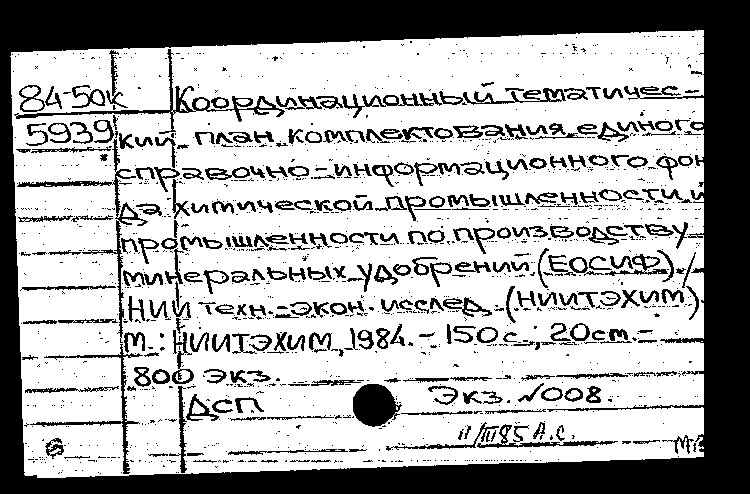 84-50к Координационный тематичес-
5939 кий план комплектования единого
справочно-информационного фон
да химической промышленности и
промышленности по производству
минеральных удобрений (ЕОСИФ) /
НИИ техн.-экон. исслед. (НИИТЭХИМ)
М.: НИИТЭХИМ, 1984. - 150 с.; 20 см. -
800 экз.
ДСП Экз. №008.
11/III85 А.С.